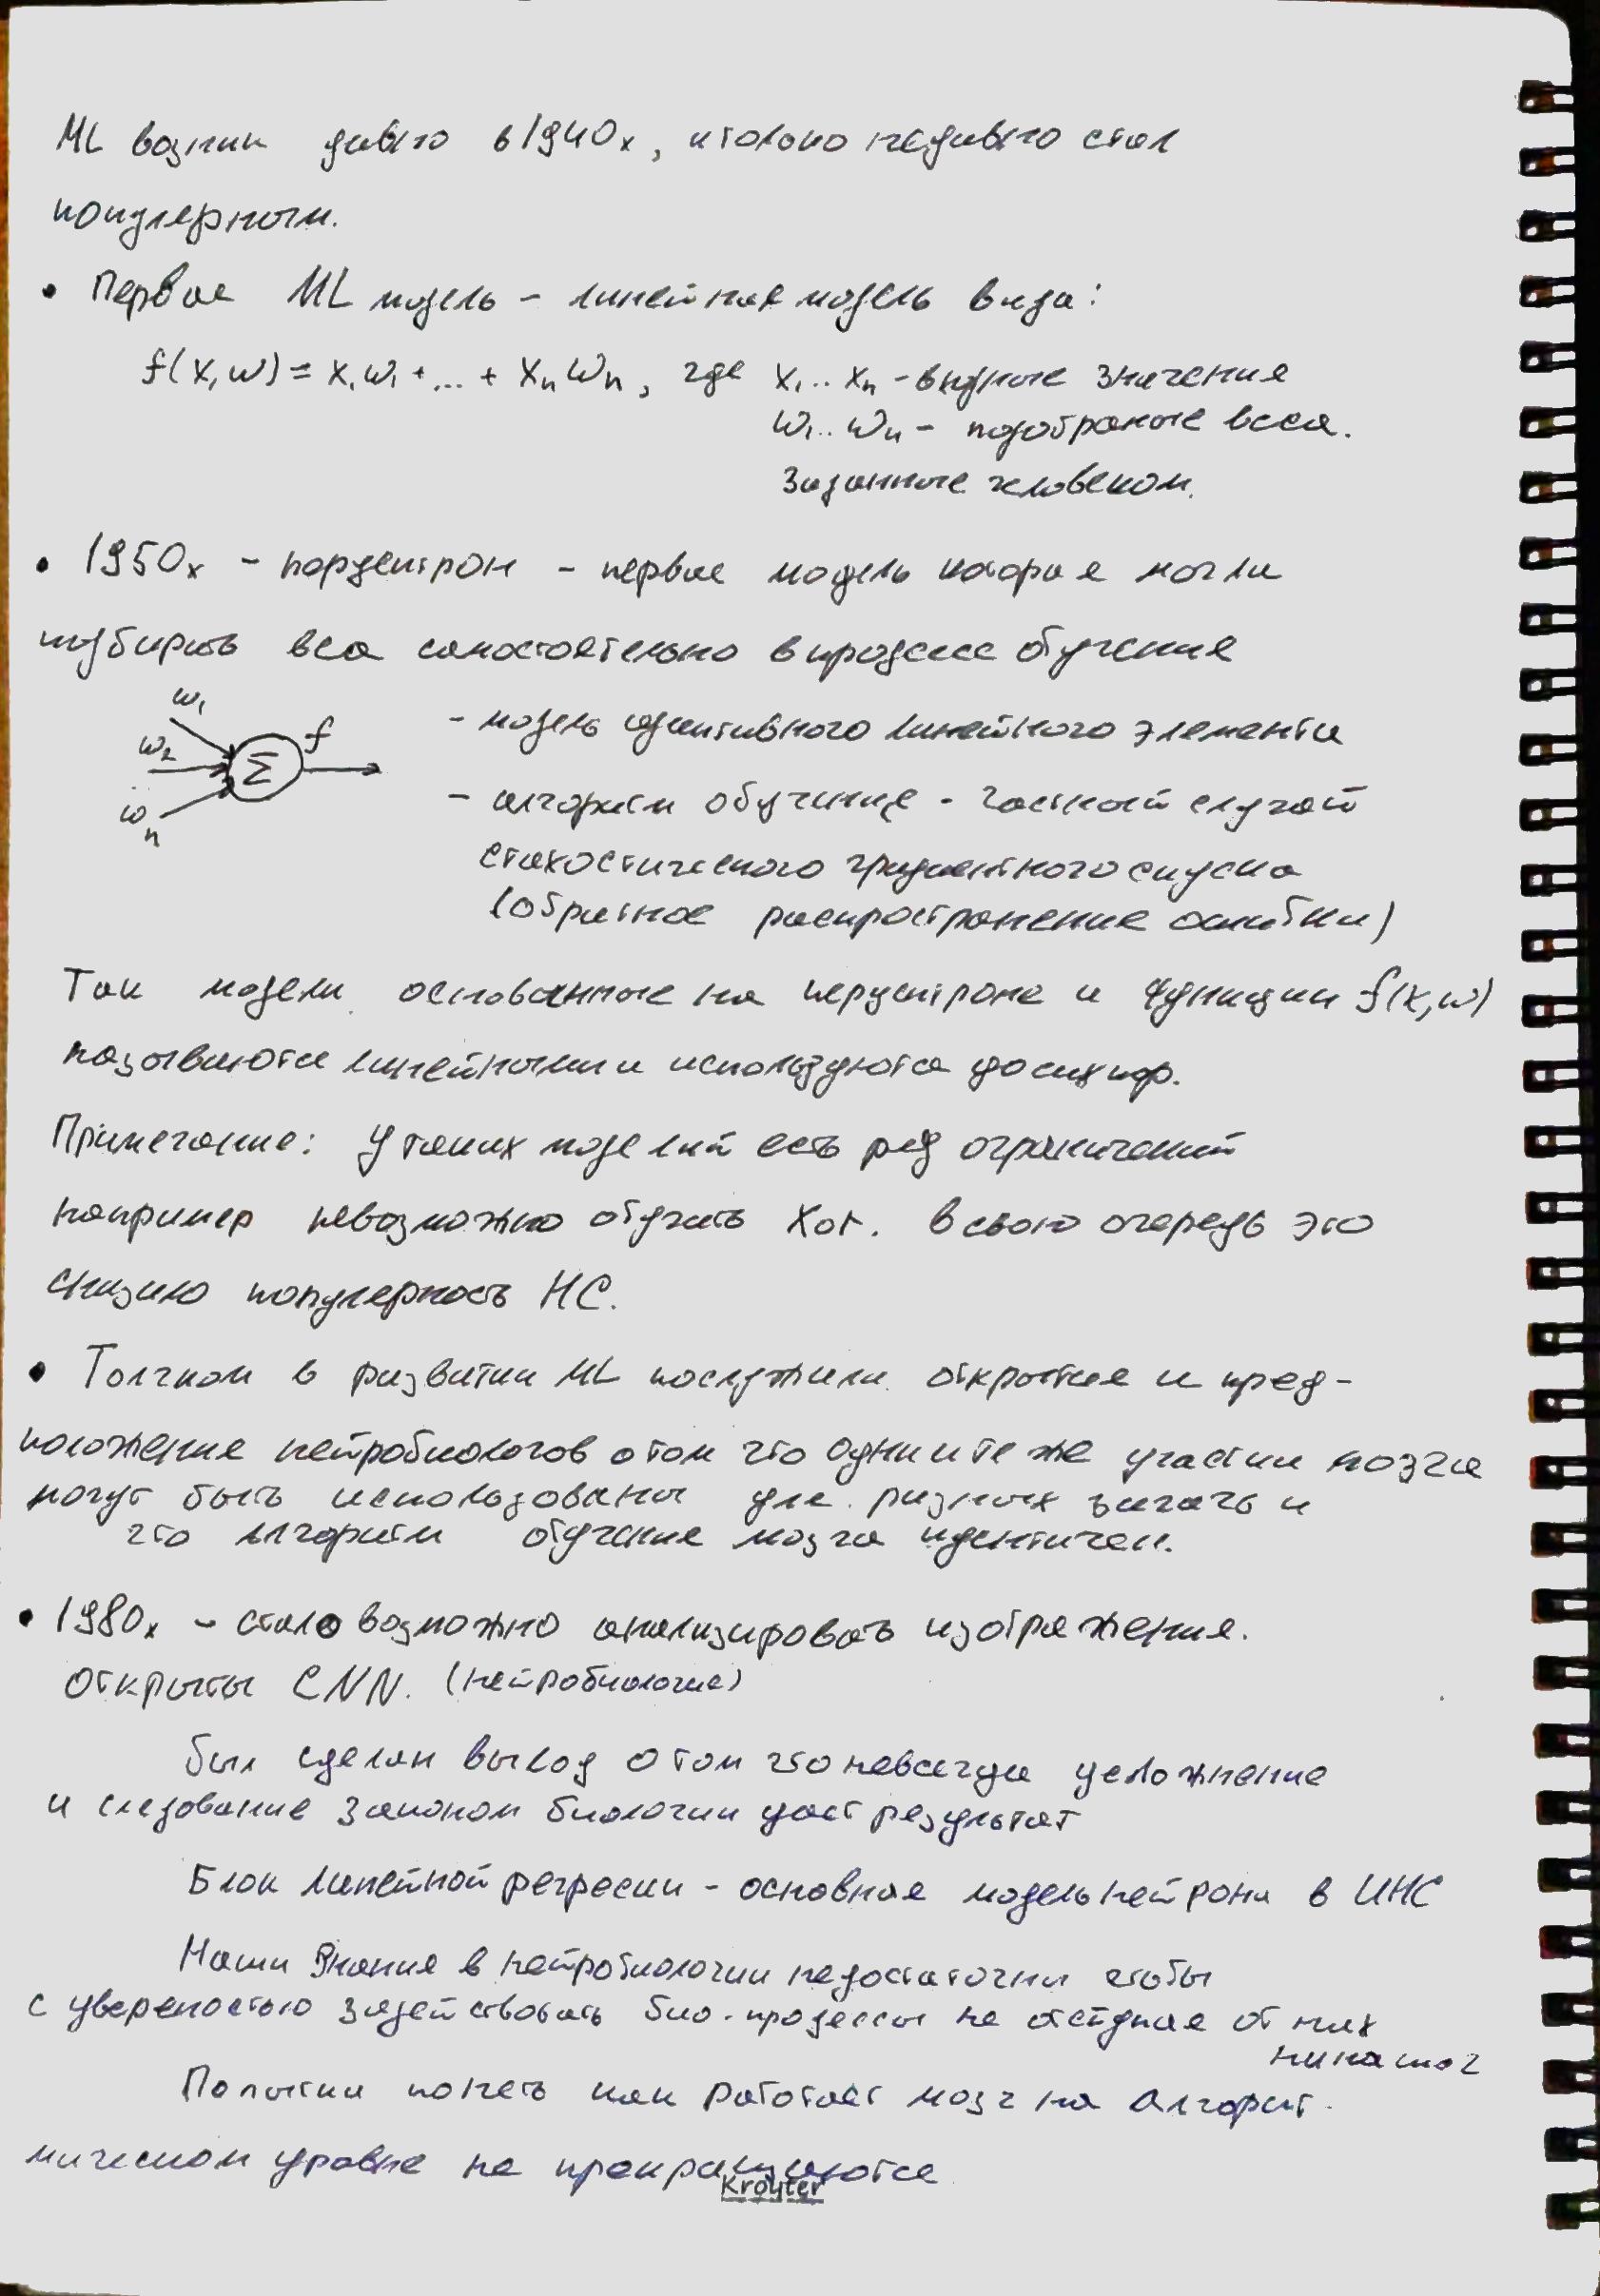 ML возник давно в 1940х, и только недавно стал
популярным.
• Первая ML модель – линейная модель вида:
f(x,w) = x₁w₁ + ... + xₙwₙ, где x₁..xₙ - входные значения
w₁..wₙ - подобраные веса.
Заданные человеком.
• 1950х - перцептрон - первая модель которая могла
подбирать веса самостоятельно в процессе обучения
w₁
w₂
wₙ
Σ
f
- модель адаптивного линейного элемента
- алгоритм обучения - частный случай
стохостического градиентного спуска
(обратное распространение ошибки)
Так модели основанные на перцептроне и функции f(x,w)
называются линейными и используются до сих пор.
Примечание: У таких моделий есть ряд ограничений
например невозможно обучить Xor. В свою очередь это
снизило популярность НС.
• Толчком в развитии ML послужили открытия и пред-
положение нейробиологов о том что одни и те же участки мозга
могут быть использованы для разных задачь и
что алгоритм обучения мозга идентичен.
• 1980х - стало возможно анализировать изображения.
Открыты CNN. (Нейробиология)
Был сделан вывод о том что невсегда усложнение
и следование законом биологии даст результат
Блок линейной регресии - основная модель нейрона в ИНС
Наши Знания в нейробиологии недостаточны чтобы
с увереностью задействовать био-процессы не отступая от них
ни на шаг
Попытки понять как работает мозг на алгорит-
мическом уровне не прекращаются
Kroyter